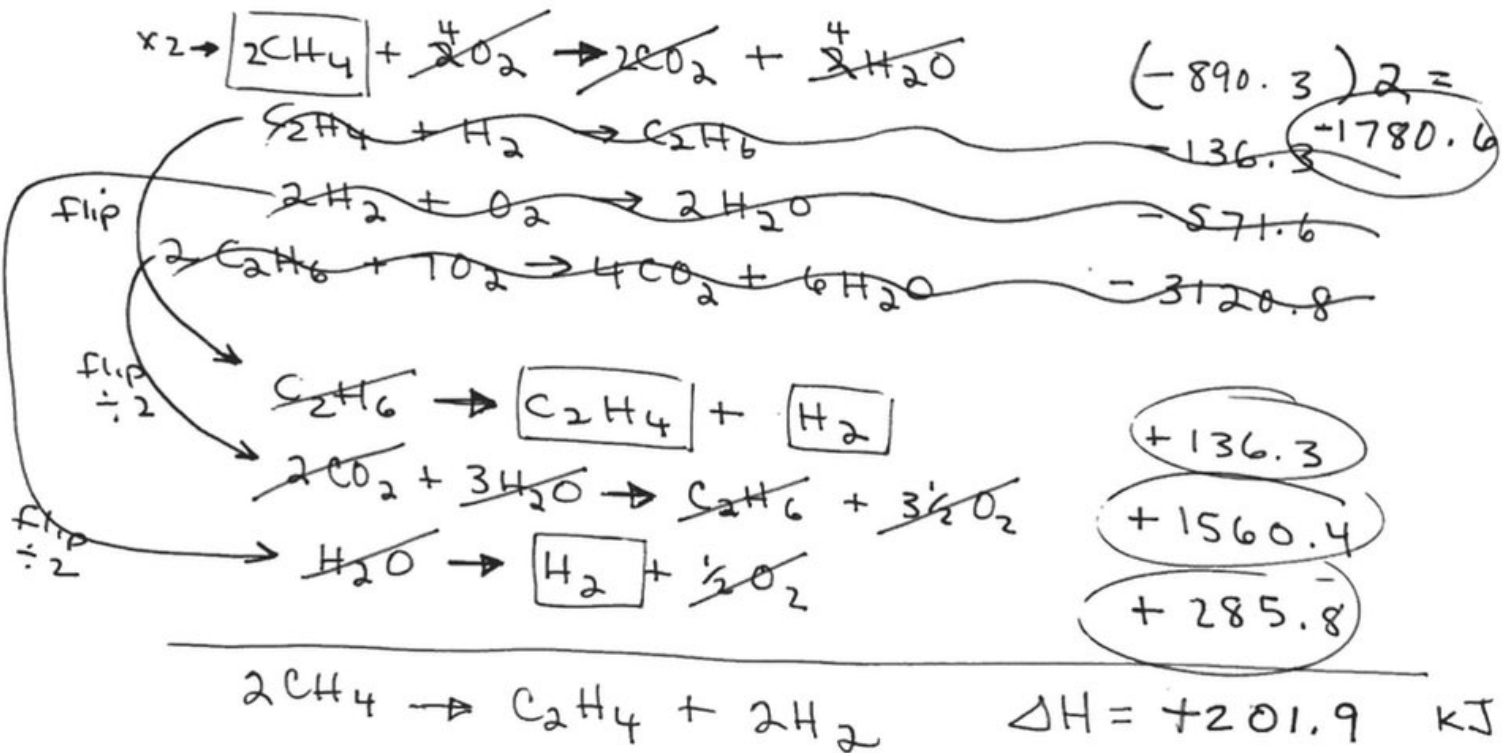 x2→ 2CH₄ + 4 2O₂ → 2CO₂ + 4 2H₂O (-890.3)2 =
C₂H₄ + H₂ → C₂H₆ -136.3 -1780.6
flip 2H₂ + O₂ → 2H₂O -571.6
2C₂H₆ + 7O₂ → 4CO₂ + 6H₂O -3120.8
flip ÷2 C₂H₆ → C₂H₄ + H₂ +136.3
2CO₂ + 3H₂O → C₂H₆ + 3½O₂ +1560.4
flip ÷2 H₂O → H₂ + ½O₂ +285.8
2CH₄ → C₂H₄ + 2H₂ ΔH = +201.9 KJ